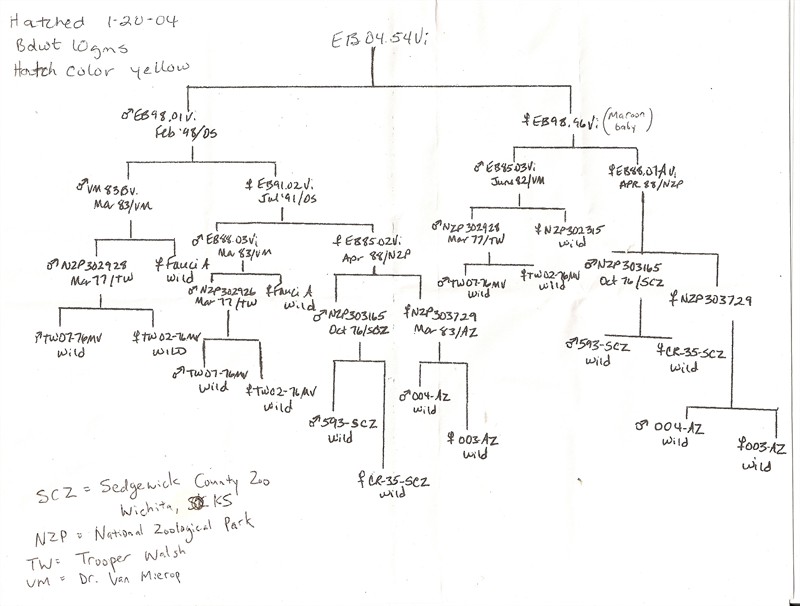 Hatched 1-20-04
Bdwt 10gms
Hatch color yellow
EB04.54Vi
♂EB98.01Vi
Feb '98/DS
♀EB98.96Vi (Maroon baby)
♂VM83BVi
Mar 83/VM
♀EB91.02Vi
Jul '91/DS
♂EB85.03Vi
June 82/VM
♀EB88.07AVi
APR 88/NZP
♂NZP302928
Mar 77/TW
♀Fauci A
Wild
♂EB88.03Vi
Mar 83/VM
♀EB85.02Vi
Apr 88/NZP
♂NZP302928
Mar 77/TW
♀NZP302315
Wild
♂NZP303165
Oct 76/SCZ
♀NZP303729
♂TW07-76MV
Wild
♀TW02-76MV
WILD
♂NZP302926
Mar 77/TW
♀Fauci A
Wild
♂NZP303165
Oct 76/SCZ
♀NZP303729
Mar 83/AZ
♂TW07-76MV
Wild
♀TW02-76MV
Wild
♂593-SCZ
Wild
♀CR-35-SCZ
Wild
♂TW07-76MV
Wild
♀TW02-76MV
Wild
♂593-SCZ
Wild
♀CR-35-SCZ
Wild
♂004-AZ
Wild
♀003-AZ
Wild
♂004-AZ
Wild
♀003-AZ
Wild
SCZ = Sedgewick County Zoo
Wichita, KS
NZP = National Zoological Park
TW= Trooper Walsh
VM = Dr. Van Mierop